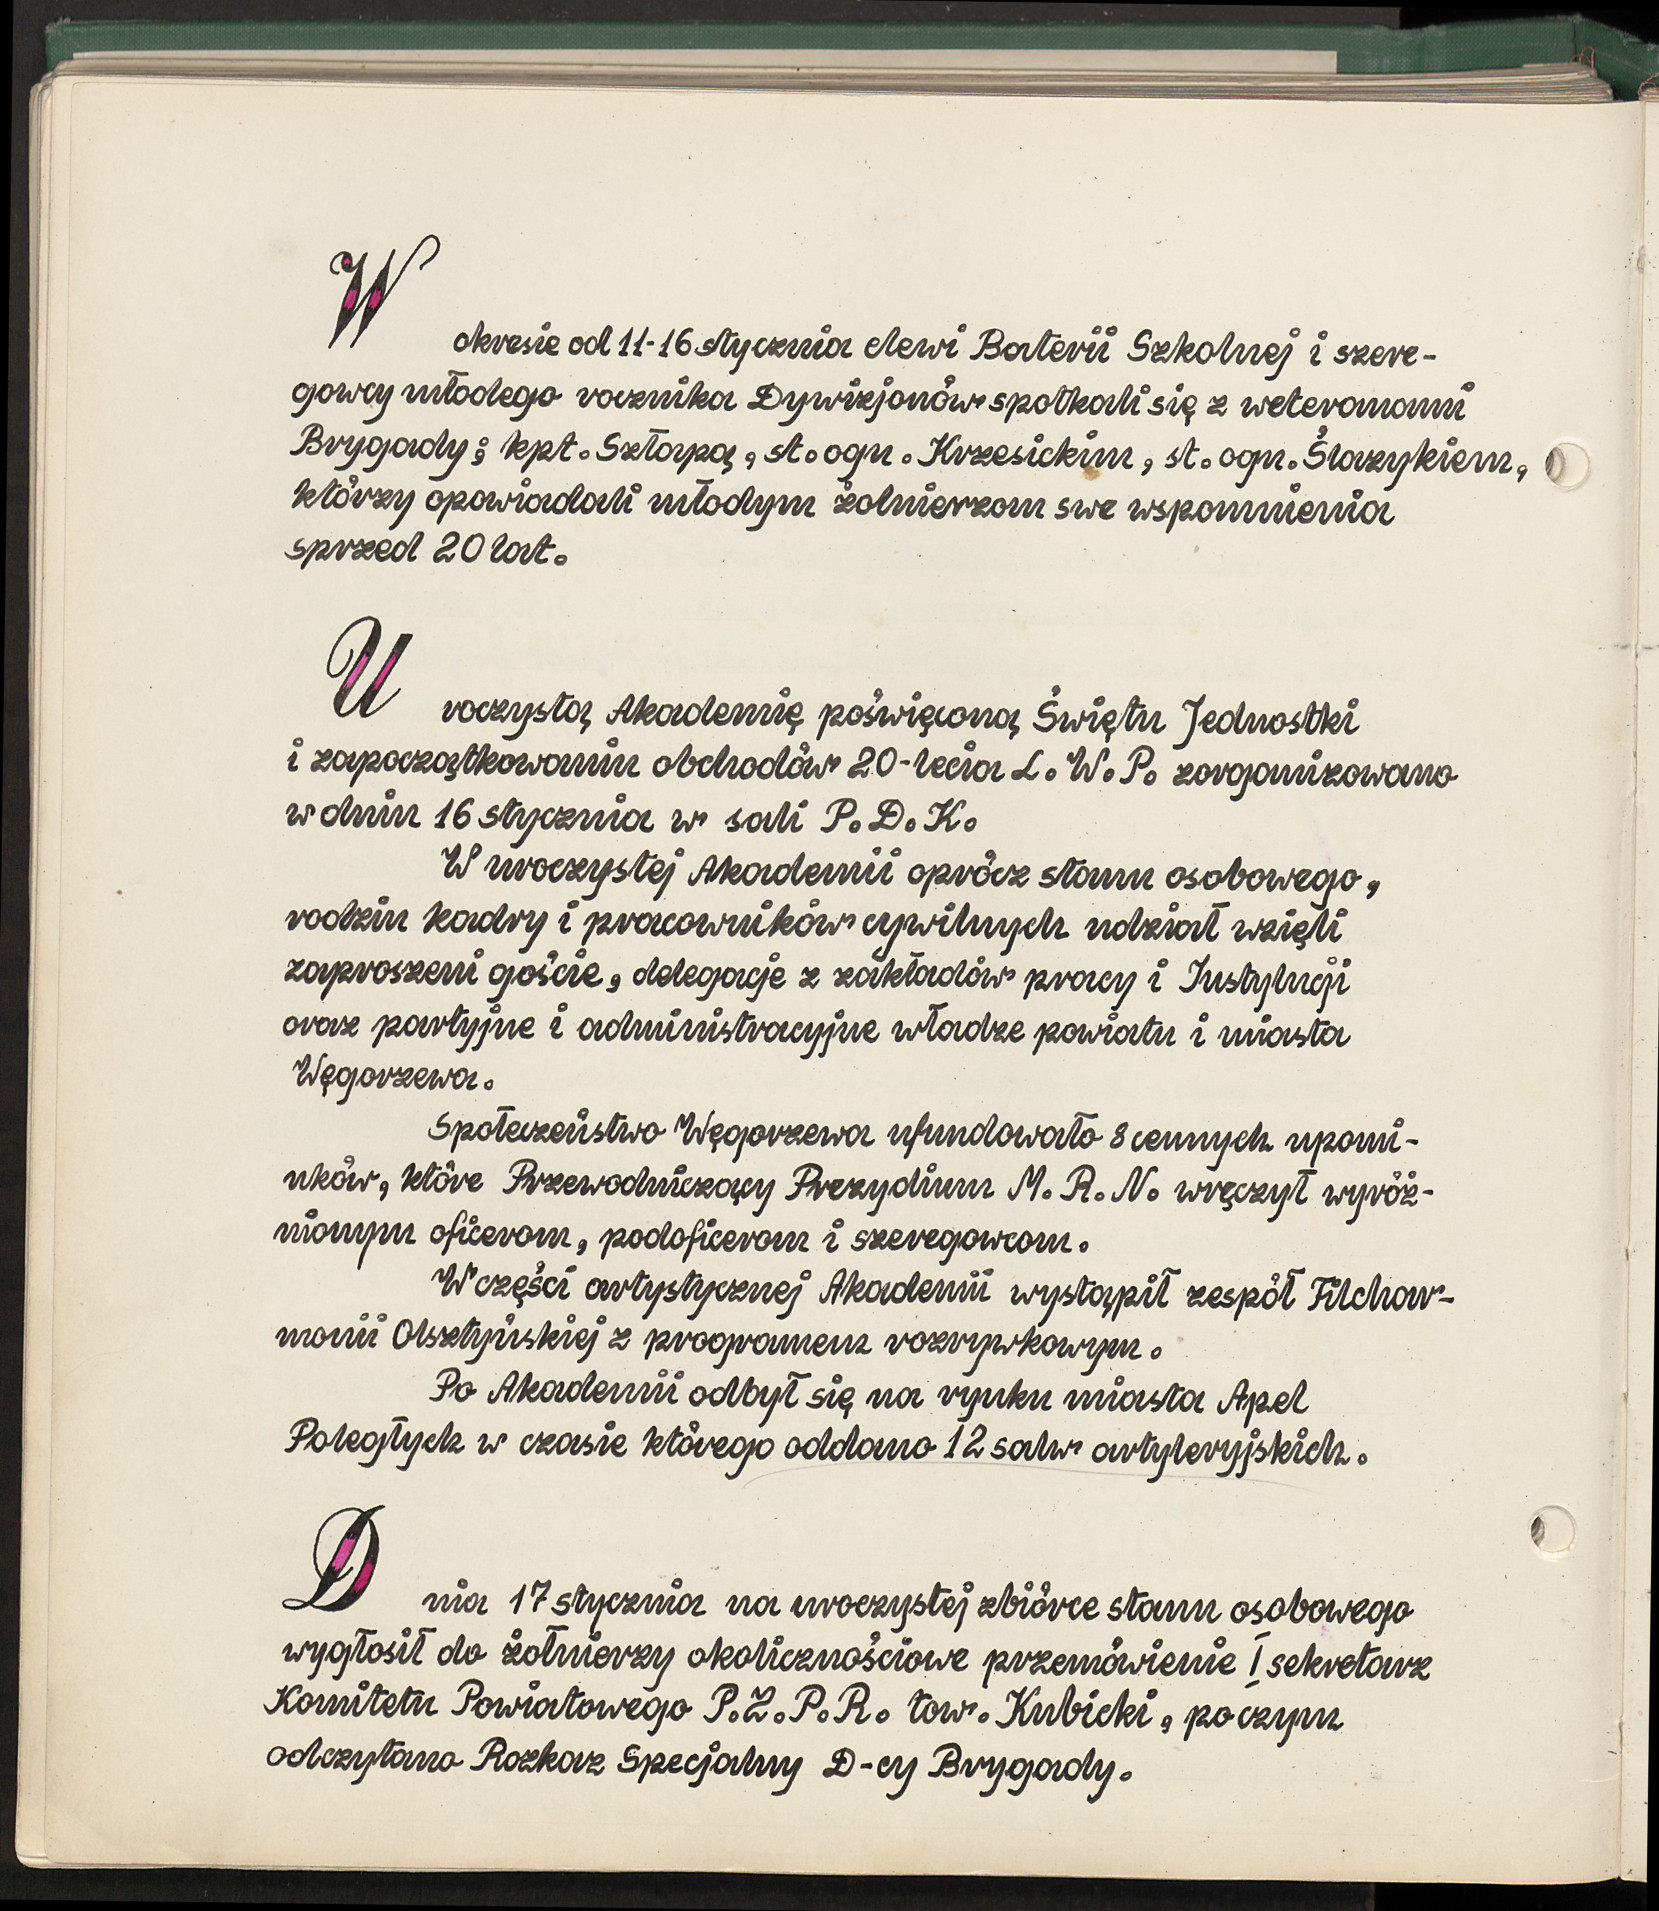 W okresie od 11-16 stycznia elewi Baterii Szkolnej i szere-
gowcy młodego rocznika Dywizjonów spotkali się z weteranami
Brygady: kpt. Sztapą, st. ogn. Krzesickim, st. ogn. Ślazykiem,
którzy opowiadali młodym żolnierzom swe wspomnienia
sprzed 20 lat.
Uroczystą Akademię poświęconą Świętu Jednostki
i zapoczątkowaniu obchodów 20-lecia L. W. P. zorganizowano
w dniu 16 stycznia w sali P. D. K.
W uroczystej Akademii oprócz stanu osobowego,
rodzin kadry i pracowników cywilnych udział wzięli
zaproszeni goście, delegacje z zakładów pracy i Instytucji
oraz partyjne i administracyjne władze powiatu i miasta
Węgorzewa.
Społeczeństwo Węgorzewa ufundowało 8 cennych upomi-
nków, które Przewodniczący Prezydium M. R. N. wręczył wyróż-
nionym oficerom, podoficerom i szeregowcom.
W części artystycznej Akademii wystąpił zespół Filchar-
monii Olsztyńskiej z programem rozrywkowym.
Po Akademii odbył się na rynku miasta Apel
Poległych w czasie którego oddano 12 salw artyleryjskich.
Dnia 17 stycznia na uroczystej zbiórce stanu osobowego
wygłosił do żołnierzy okolicznościowe przemówienie I sekretarz
Komitetu Powiatowego P. Z. P. R. tow. Kubicki, poczym
odczytano Rozkaz Specjalny D-cy Brygady.